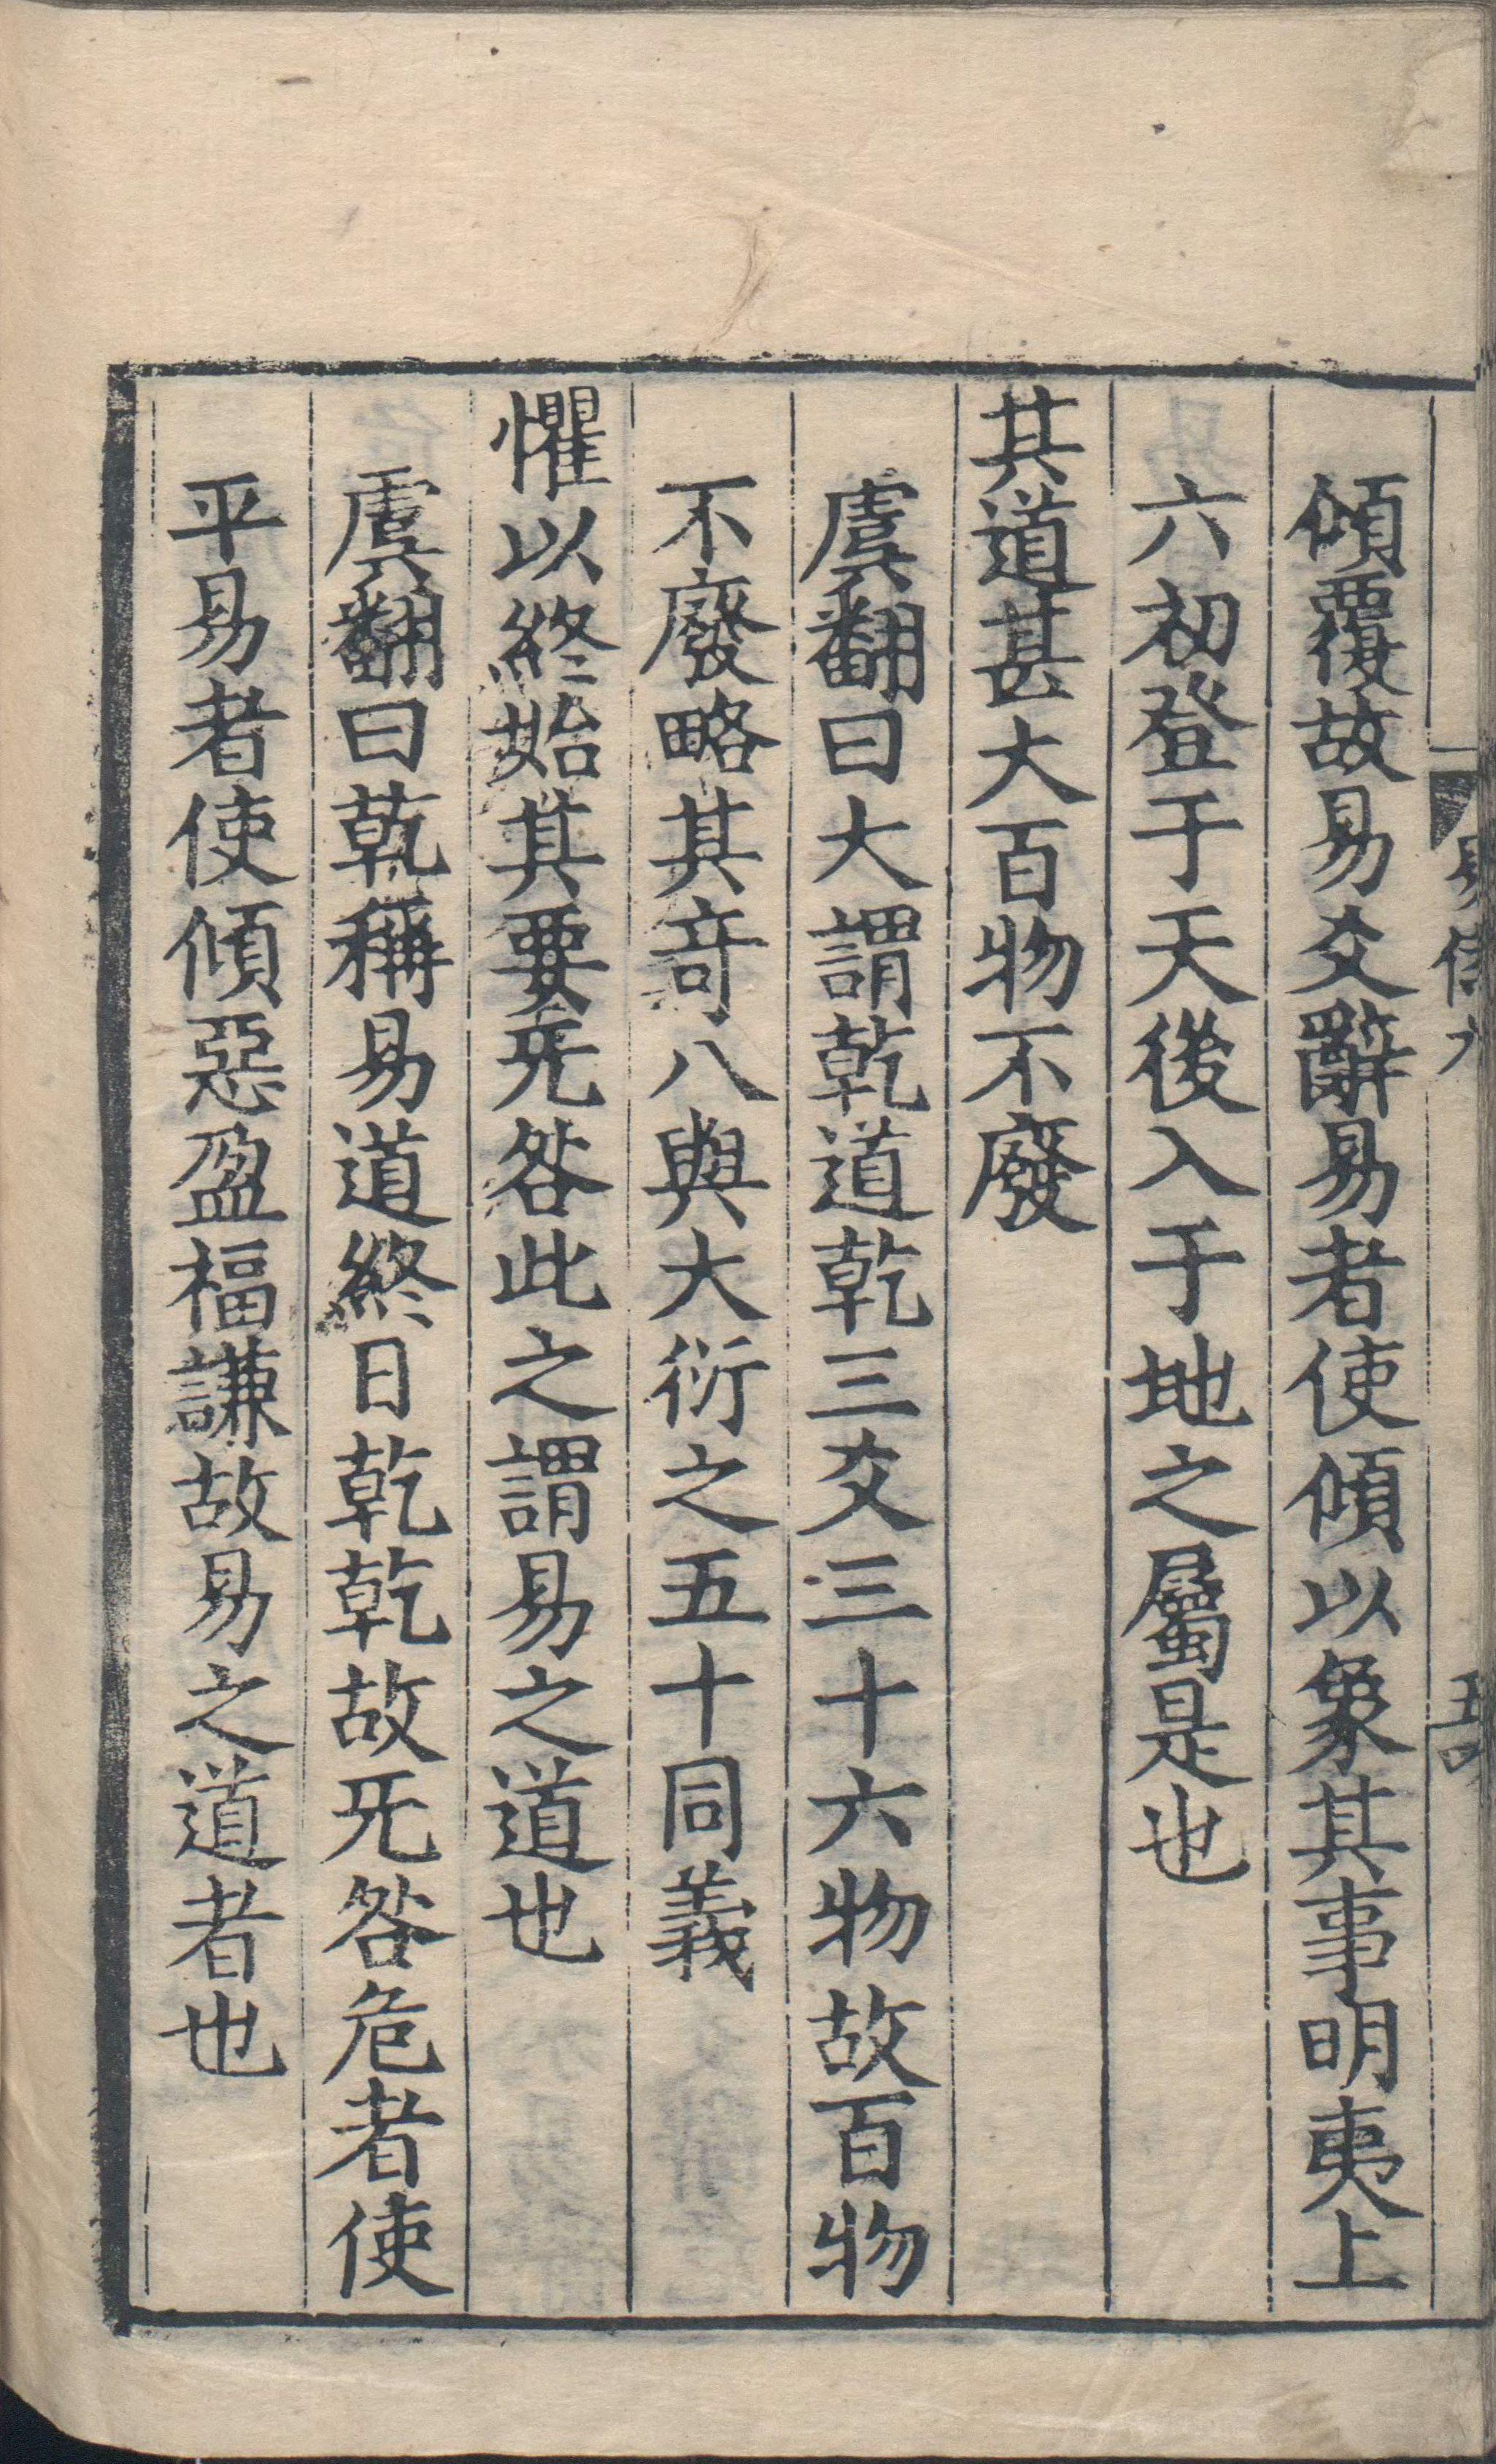 傾覆故易爻辭易者使傾以象其事明夷上
六初登于天後入于地之屬是也
其道甚大百物不廢
虞翻曰大謂乾道乾三爻三十六物故百物
不廢略其奇八與大衍之五十同義
懼以終始其要无咎此之謂易之道也
虞翻曰乾稱易道終日乾乾故无咎危者使
平易者使傾惡盈福謙故易之道者也